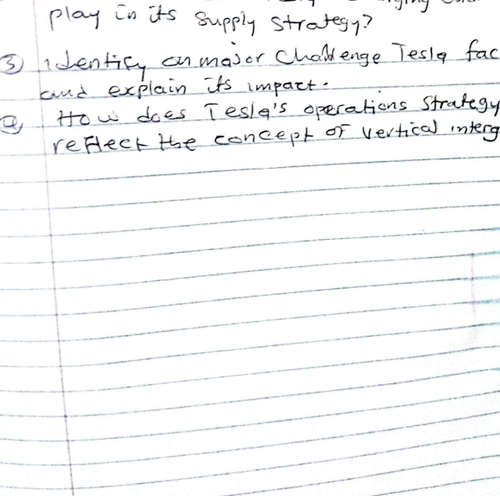 play in its supply strategy?
③ identify an major Challenge Tesla fac
and explain its impact.
④ How does Tesla's operations strategy
reflect the concept of vertical interg